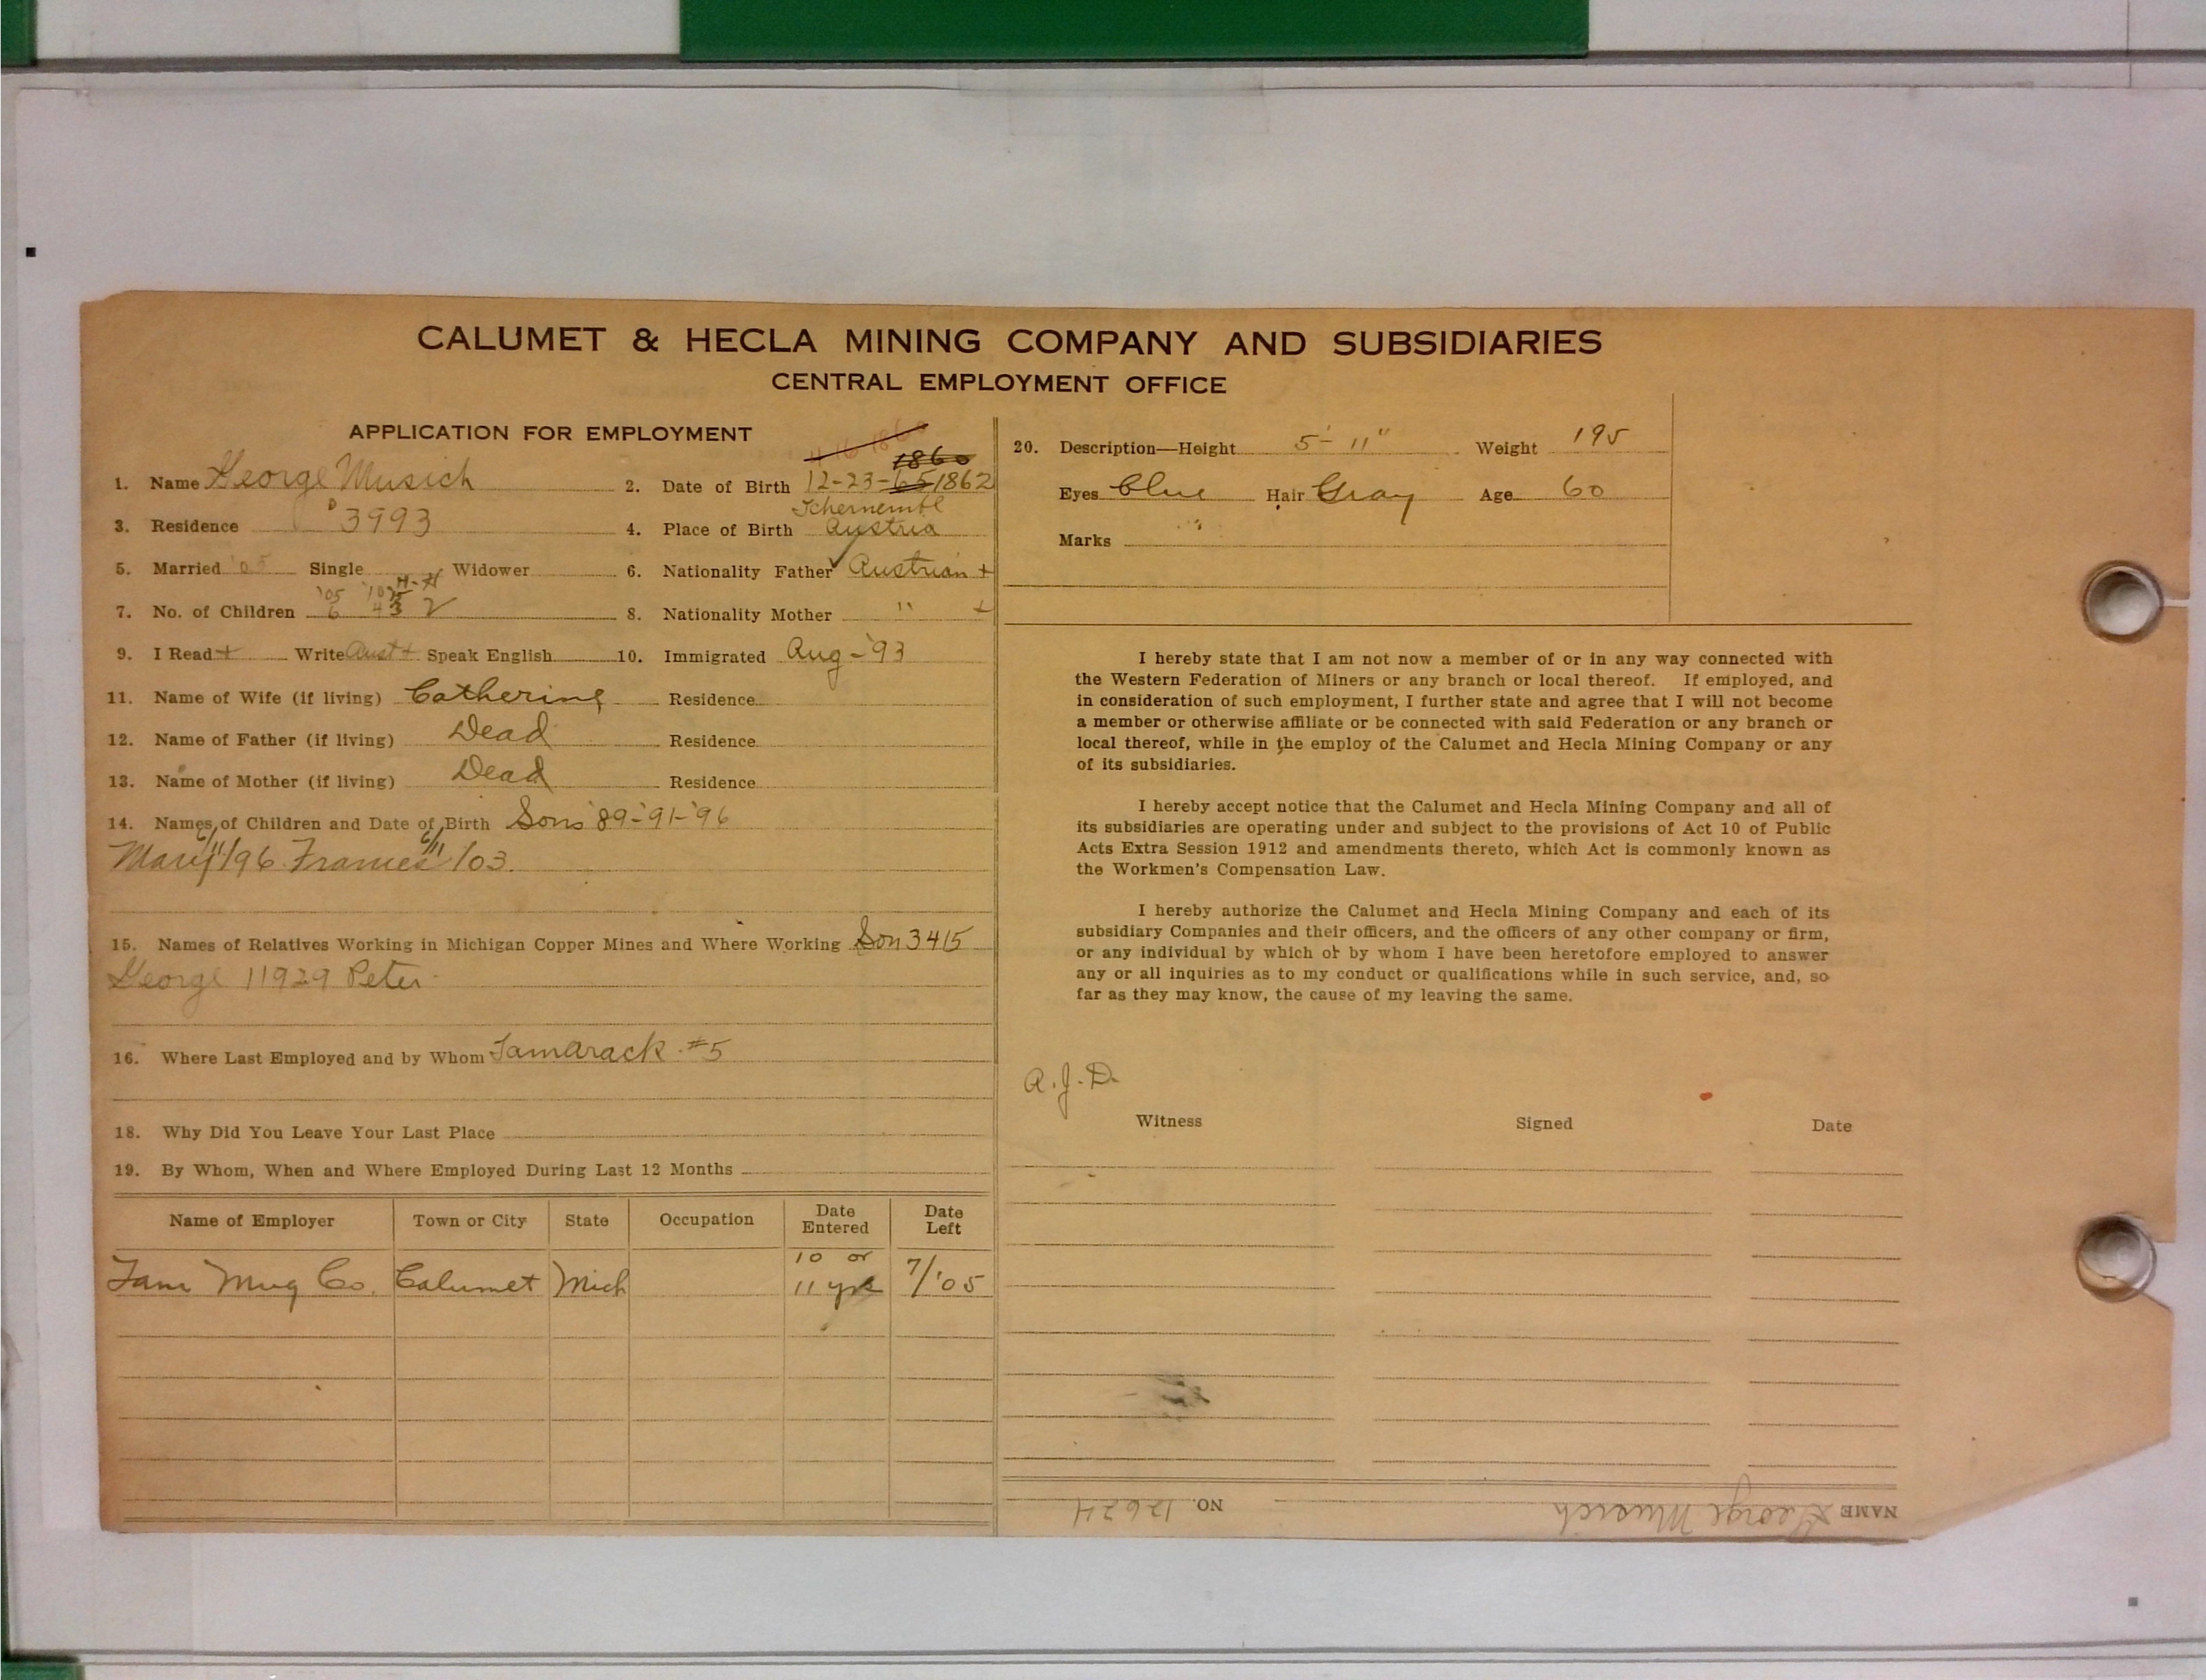 CALUMET & HECLA MINING COMPANY AND SUBSIDIARIES
CENTRAL EMPLOYMENT OFFICE
APPLICATION FOR EMPLOYMENT
4-16-1860
1860
1. Name George Musich
2. Date of Birth 12-23-65 1862
3. Residence 3993
Tchernembl
4. Place of Birth Austria
5. Married '05 Single Widower
6. Nationality Father Austrian +
'05 '10
7. No. of Children 6 4 3 2
8. Nationality Mother " +
9. I Read + Write Aust + Speak English
10. Immigrated Aug - '93
11. Name of Wife (if living) Catherine Residence
12. Name of Father (if living) Dead Residence
13. Name of Mother (if living) Dead Residence
14. Names of Children and Date of Birth Sons '89-'91-'96
Mary 6/11/96 Frances 6/11/03.
15. Names of Relatives Working in Michigan Copper Mines and Where Working Son 3415
George 11929 Peter
16. Where Last Employed and by Whom Tamarack #5
18. Why Did You Leave Your Last Place
19. By Whom, When and Where Employed During Last 12 Months
Name of Employer Town or City State Occupation Date Entered Date Left
Tam Mng Co. Calumet Mich 10 or 11 yrs 7/'05
20. Description—Height 5'-11" Weight 195
Eyes Blue Hair Gray Age 60
Marks "
I hereby state that I am not now a member of or in any way connected with
the Western Federation of Miners or any branch or local thereof. If employed, and
in consideration of such employment, I further state and agree that I will not become
a member or otherwise affiliate or be connected with said Federation or any branch or
local thereof, while in the employ of the Calumet and Hecla Mining Company or any
of its subsidiaries.
I hereby accept notice that the Calumet and Hecla Mining Company and all of
its subsidiaries are operating under and subject to the provisions of Act 10 of Public
Acts Extra Session 1912 and amendments thereto, which Act is commonly known as
the Workmen's Compensation Law.
I hereby authorize the Calumet and Hecla Mining Company and each of its
subsidiary Companies and their officers, and the officers of any other company or firm,
or any individual by which or by whom I have been heretofore employed to answer
any or all inquiries as to my conduct or qualifications while in such service, and, so
far as they may know, the cause of my leaving the same.
A.J.D.
Witness Signed Date
NAME George Musich NO. 12624